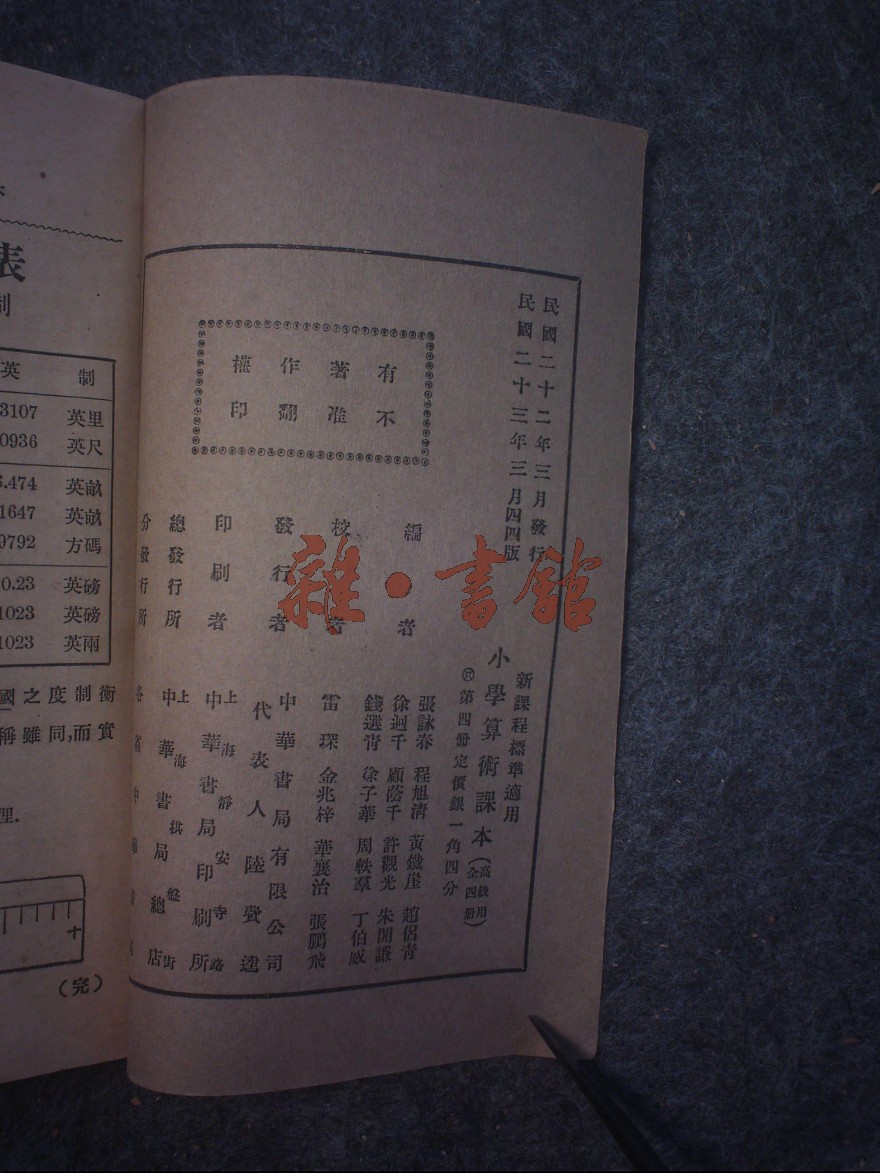 民國二十二年三月發行
民國二十三年三月四四版
有著作權
不准翻印
新課程標準適用
小學算術課本（高級用全四冊）
第四冊定價銀一角四分
編者
張詠春 程旭清 黃鐵崖 趙侶青
徐迥千 顧蔭千 許觀光 朱開謙
錢選青 徐子華 周軼羣 丁伯威
校者
雷琛 金兆梓 華襄治 張鵬飛
發行者
中華書局有限公司
代表人 陸費逵
印刷者
上海靜安寺路
中華書局印刷所
總發行所
上海棋盤街
中華書局總店
分發行所
各省中華書局
雜·書館
表
制
英 制
3107 英里
0936 英尺
.474 英畝
1647 英畝
9792 方碼
0.23 英磅
1023 英磅
1023 英兩
國之度制衡
稱雖同,而實
理.
十
(完)